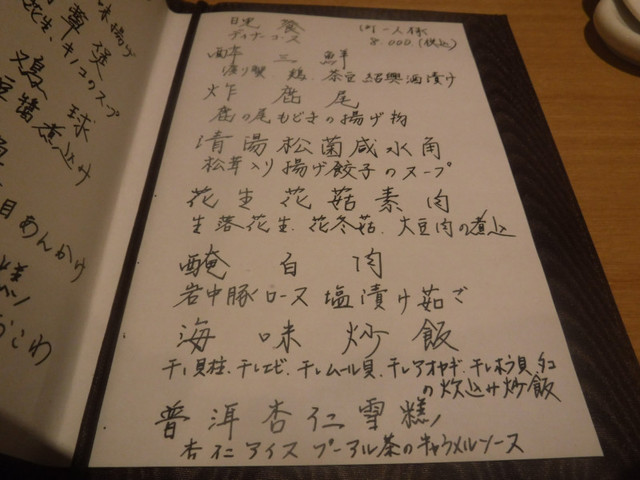 味揚げ
キノコのスープ
球
豆醤煮込み
目あんかけ
おこわ
晩餐
ディナーコース
お一人様
8,000.(税込)
酔三鮮
渡り蟹、鶏、茶豆 紹興酒漬け
炸鹿尾
鹿の尾もどきの揚げ物
清湯松菌咸水角
松茸入り揚げ餃子のスープ
花生花菇素肉
生落花生、花冬菇、大豆肉の煮込
醃白肉
岩中豚ロース塩漬け茹で
海味炒飯
干し貝柱、干しエビ、干しムール貝、干しアオヤギ、干しホラ貝、タコ
の炊込み炒飯
普洱杏仁雪糕
杏仁アイス プーアル茶のキャラメルソース